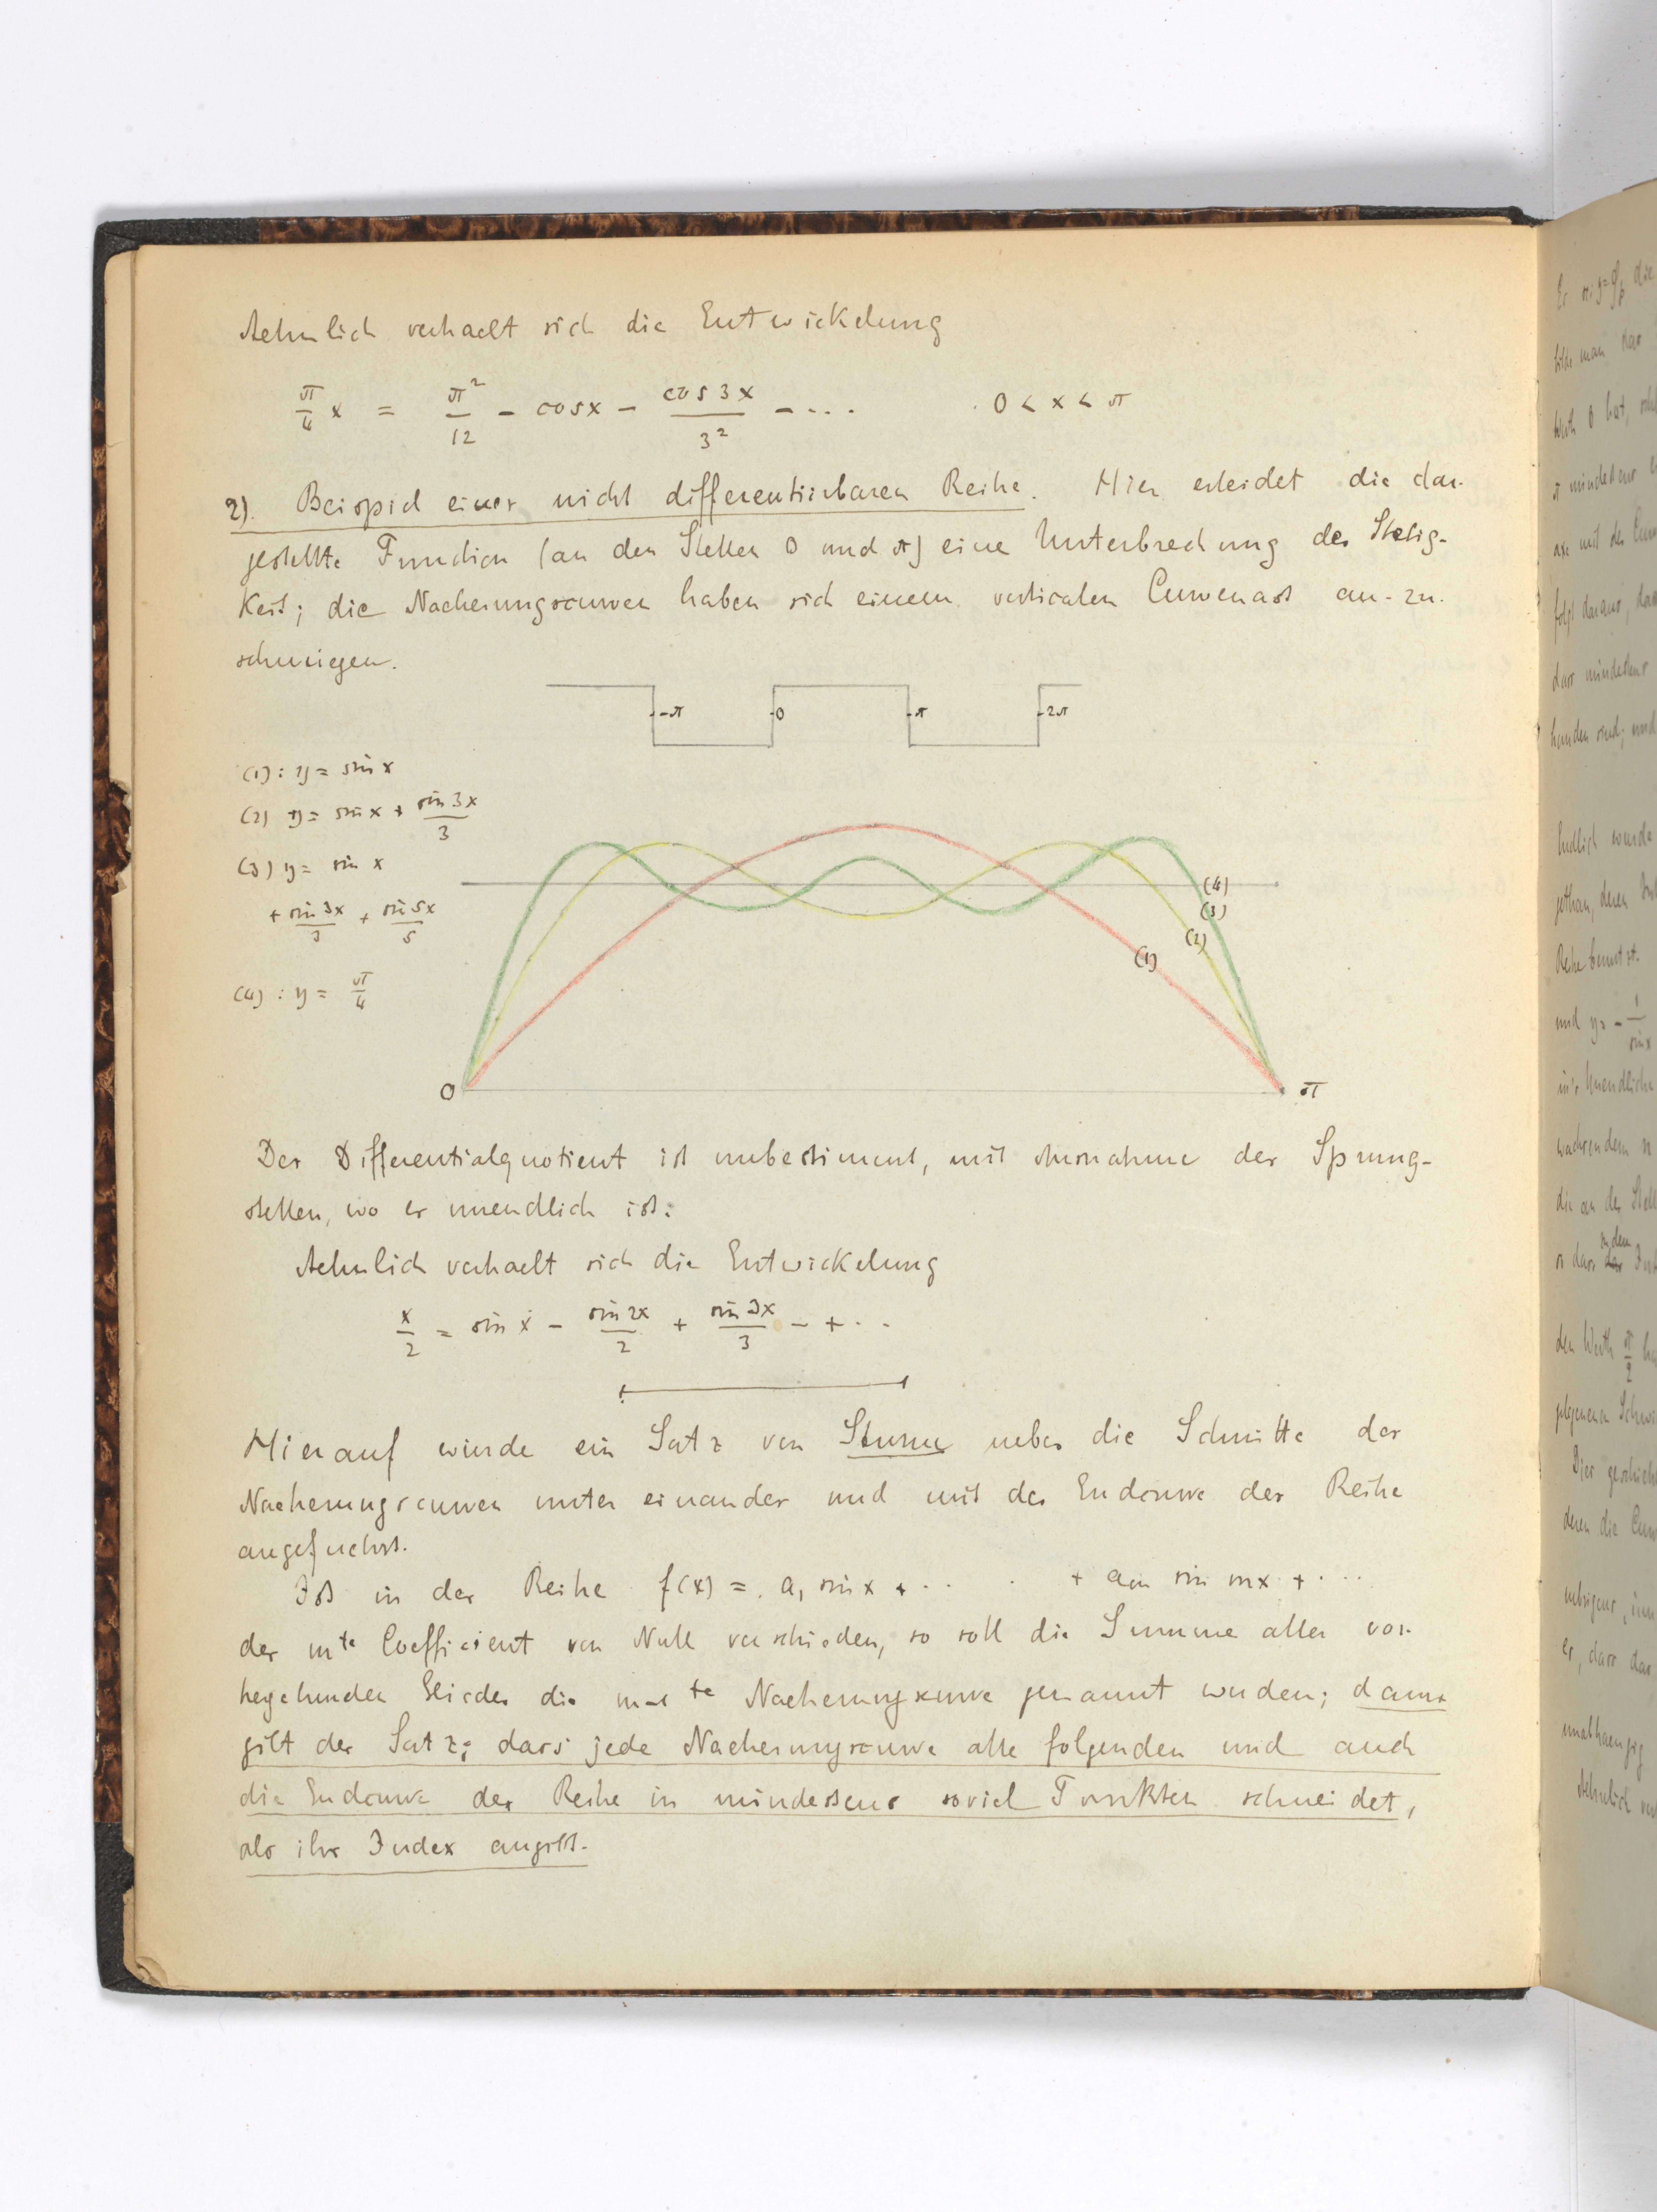 Aehnlich verhaelt sich die Entwickelung
π/4 x = π²/12 - cosx - cos3x/3² - ... 0 < x < π
2). Beispiel einer nicht differentiirbaren Reihe. Hier erleidet die dar-
gestellte Function (an den Stellen 0 und π) eine Unterbrechung der Stetig-
keit; die Naeherungscurven haben sich einem verticalen Curvenast an-zu-
schmiegen.
-π 0 π 2π
(1): y = sin x
(2) y = sin x + sin 3x/3
(3) y = sin x
+ sin 3x/3 + sin 5x/5
(4): y = π/4
(4)
(3)
(2)
(1)
0 π
Der Differentialquotient ist unbestimmt, mit Ausnahme der Sprung-
stellen, wo er unendlich ist.
Aehnlich verhaelt sich die Entwickelung
x/2 = sin x - sin 2x/2 + sin 3x/3 - + ..
Hierauf wurde ein Satz von Sturm ueber die Schnitte der
Naeherungscurven unter einander und mit der Endcurve der Reihe
angefuehrt.
Ist in der Reihe f(x) = a₁ sin x + .. . + aₘ sin mx + ...
der mte Coefficient von Null verschieden, so soll die Summe aller vor-
hergehenden Glieder die m-1 te Naeherungscurve genannt werden; dann
gilt der Satz: dass jede Naeherungscurve alle folgenden und auch
die Endcurve der Reihe in mindestens soviel Punkten schneidet,
als ihr Index angibt.
die
man
wurde
deren
Reihe benutzt.
und y = - 1/sin x
in's Unendliche
die an der Stelle
den Werth π/2
deren die
unabhaengig
Aehnlich